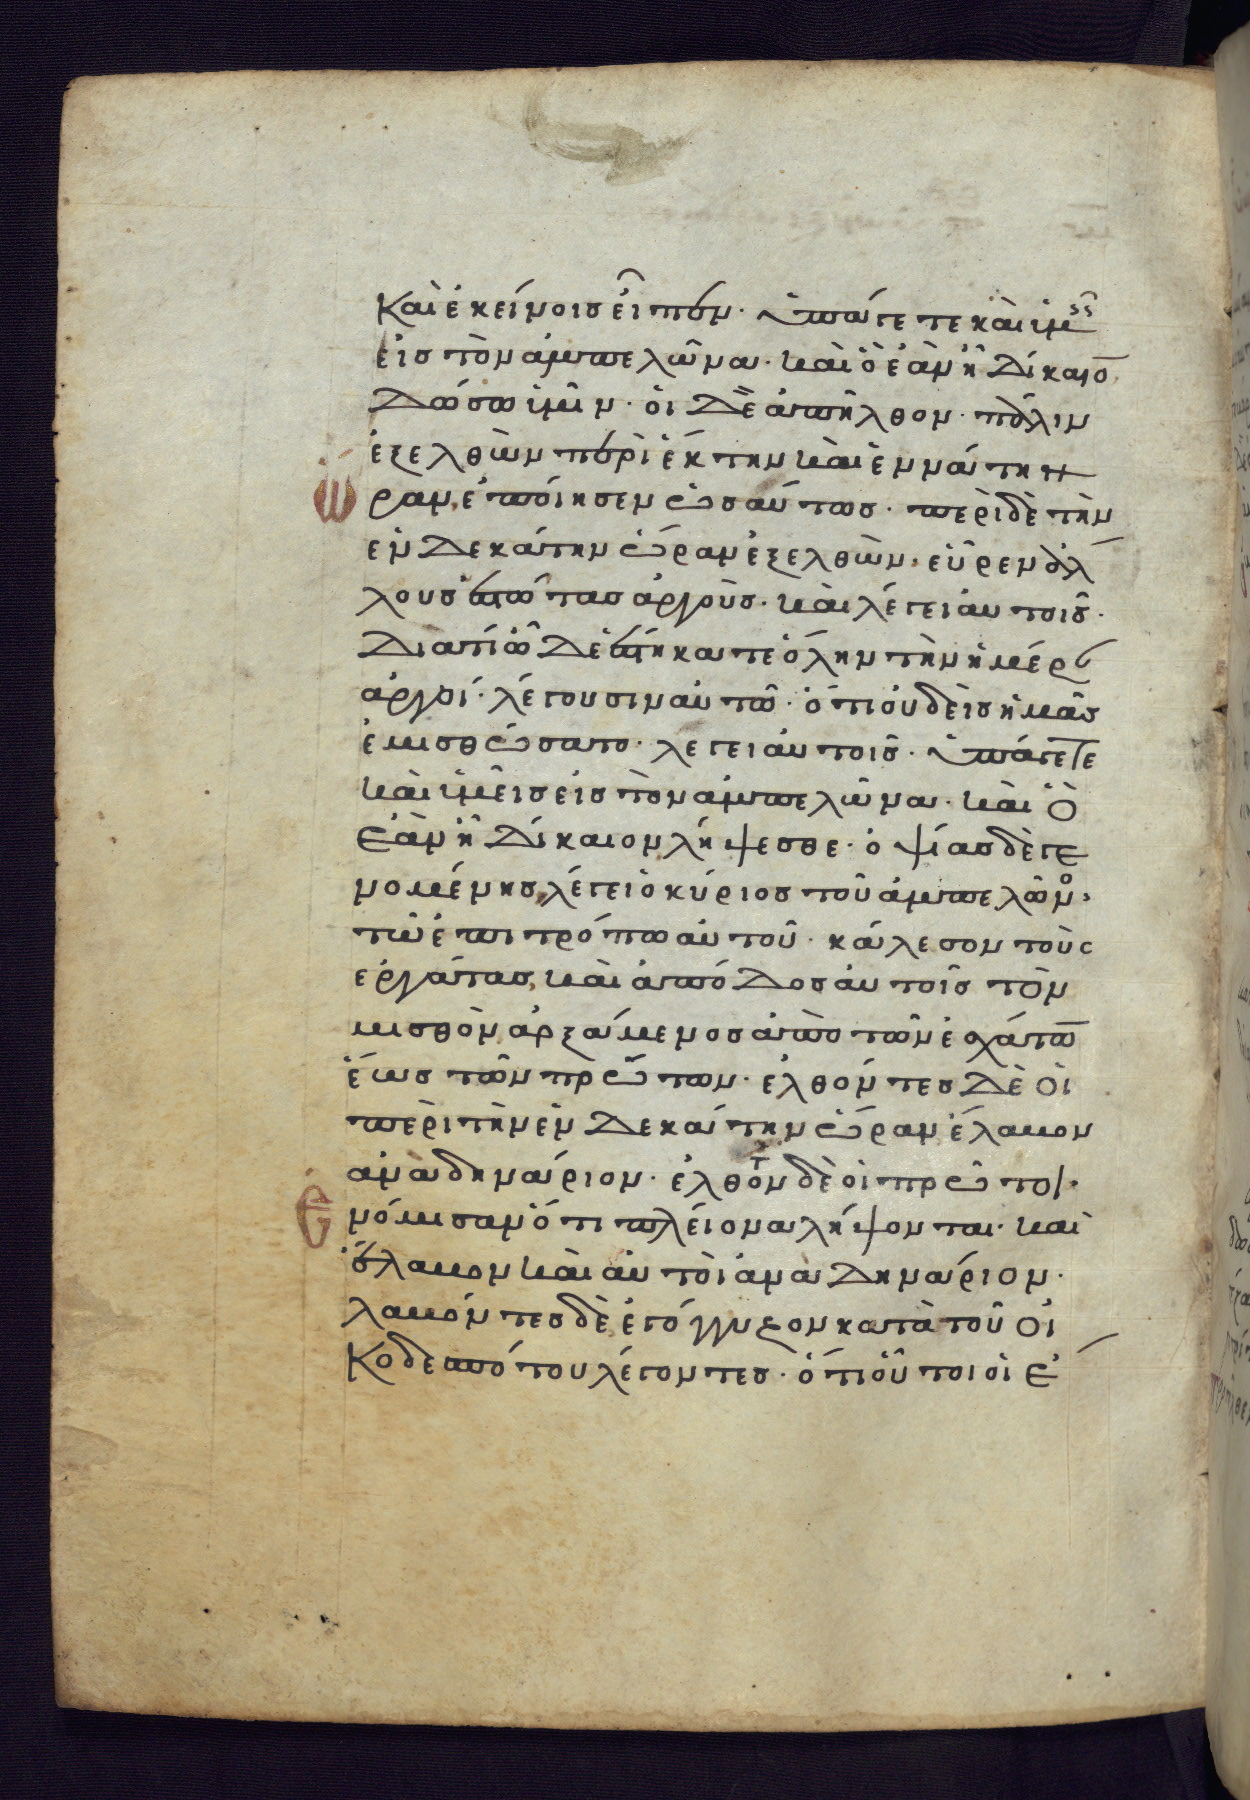 Καὶ ἐκείνοισ εἶπεν· ὑπάγετε καὶ ὑμεῖς
εἰσ τὸν ἀμπελῶνα· καὶ ὃ ἐὰν ῆ δίκαιο̅
δώσω ὑμῖν· οἱ δὲ ἀπῆλθον· πάλιν
ἐξελθὼν περὶ ἕκτην καὶ ἐννάτην
ὥραν, ἐποίησεν ὡσαύτωσ· περὶ δὲ τὴν
ἑνδεκάτην ὥραν ἐξελθὼν, εὗρεν ἄλ
λουσ ἑστῶτασ ἀργοὺσ· καὶ λέγει αὐτοῖσ·
Διατί ὧδε ἑστήκατε ὅλην τὴν ἡμέραν
ἀργοί· λέγουσιν αὐτῶ· ὅτι οὐδεὶσ ἡμᾶσ
ἐμισθώσατο· λέγει αὐτοῖσ· ὑπάγετε
καὶ ὑμεῖσ εἰσ τὸν ἀμπελῶνα· καὶ ὃ
ἐὰν ῆ δίκαιον λήψεσθε· ὀψίασ δὲ γε
νομένησ, λέγει ὁ κύριοσ τοῦ ἀμπελῶνο·
τῶ ἐπιτρόπω αὐτοῦ· κάλεσον τοὺς
ἐργάτασ, καὶ ἀπόδοσ αὐτοῖσ τὸν
μισθὸν ἀρξάμενοσ ἀπὸ τῶν ἐσχάτω̅
ἕωσ τῶν πρώτων· ἐλθόντεσ δὲ οἱ
περὶ τὴν ἑνδεκάτην ὥραν ἔλαβον
ἀνὰ δηνάριον· ἐλθόντ δὲ οἱ πρῶτοι·
ἐνόμισαν ὅτι πλείονα λήψονται· καὶ
ἔλαβον καὶ αὐτοὶ ἀνὰ δηνάριον·
λαβόντεσ δὲ, ἐγόγγυζον κατὰ τοῦ οἰ
κοδεσπότου λέγοντεσ· ὅτι οὗτοι οἱ ἔ